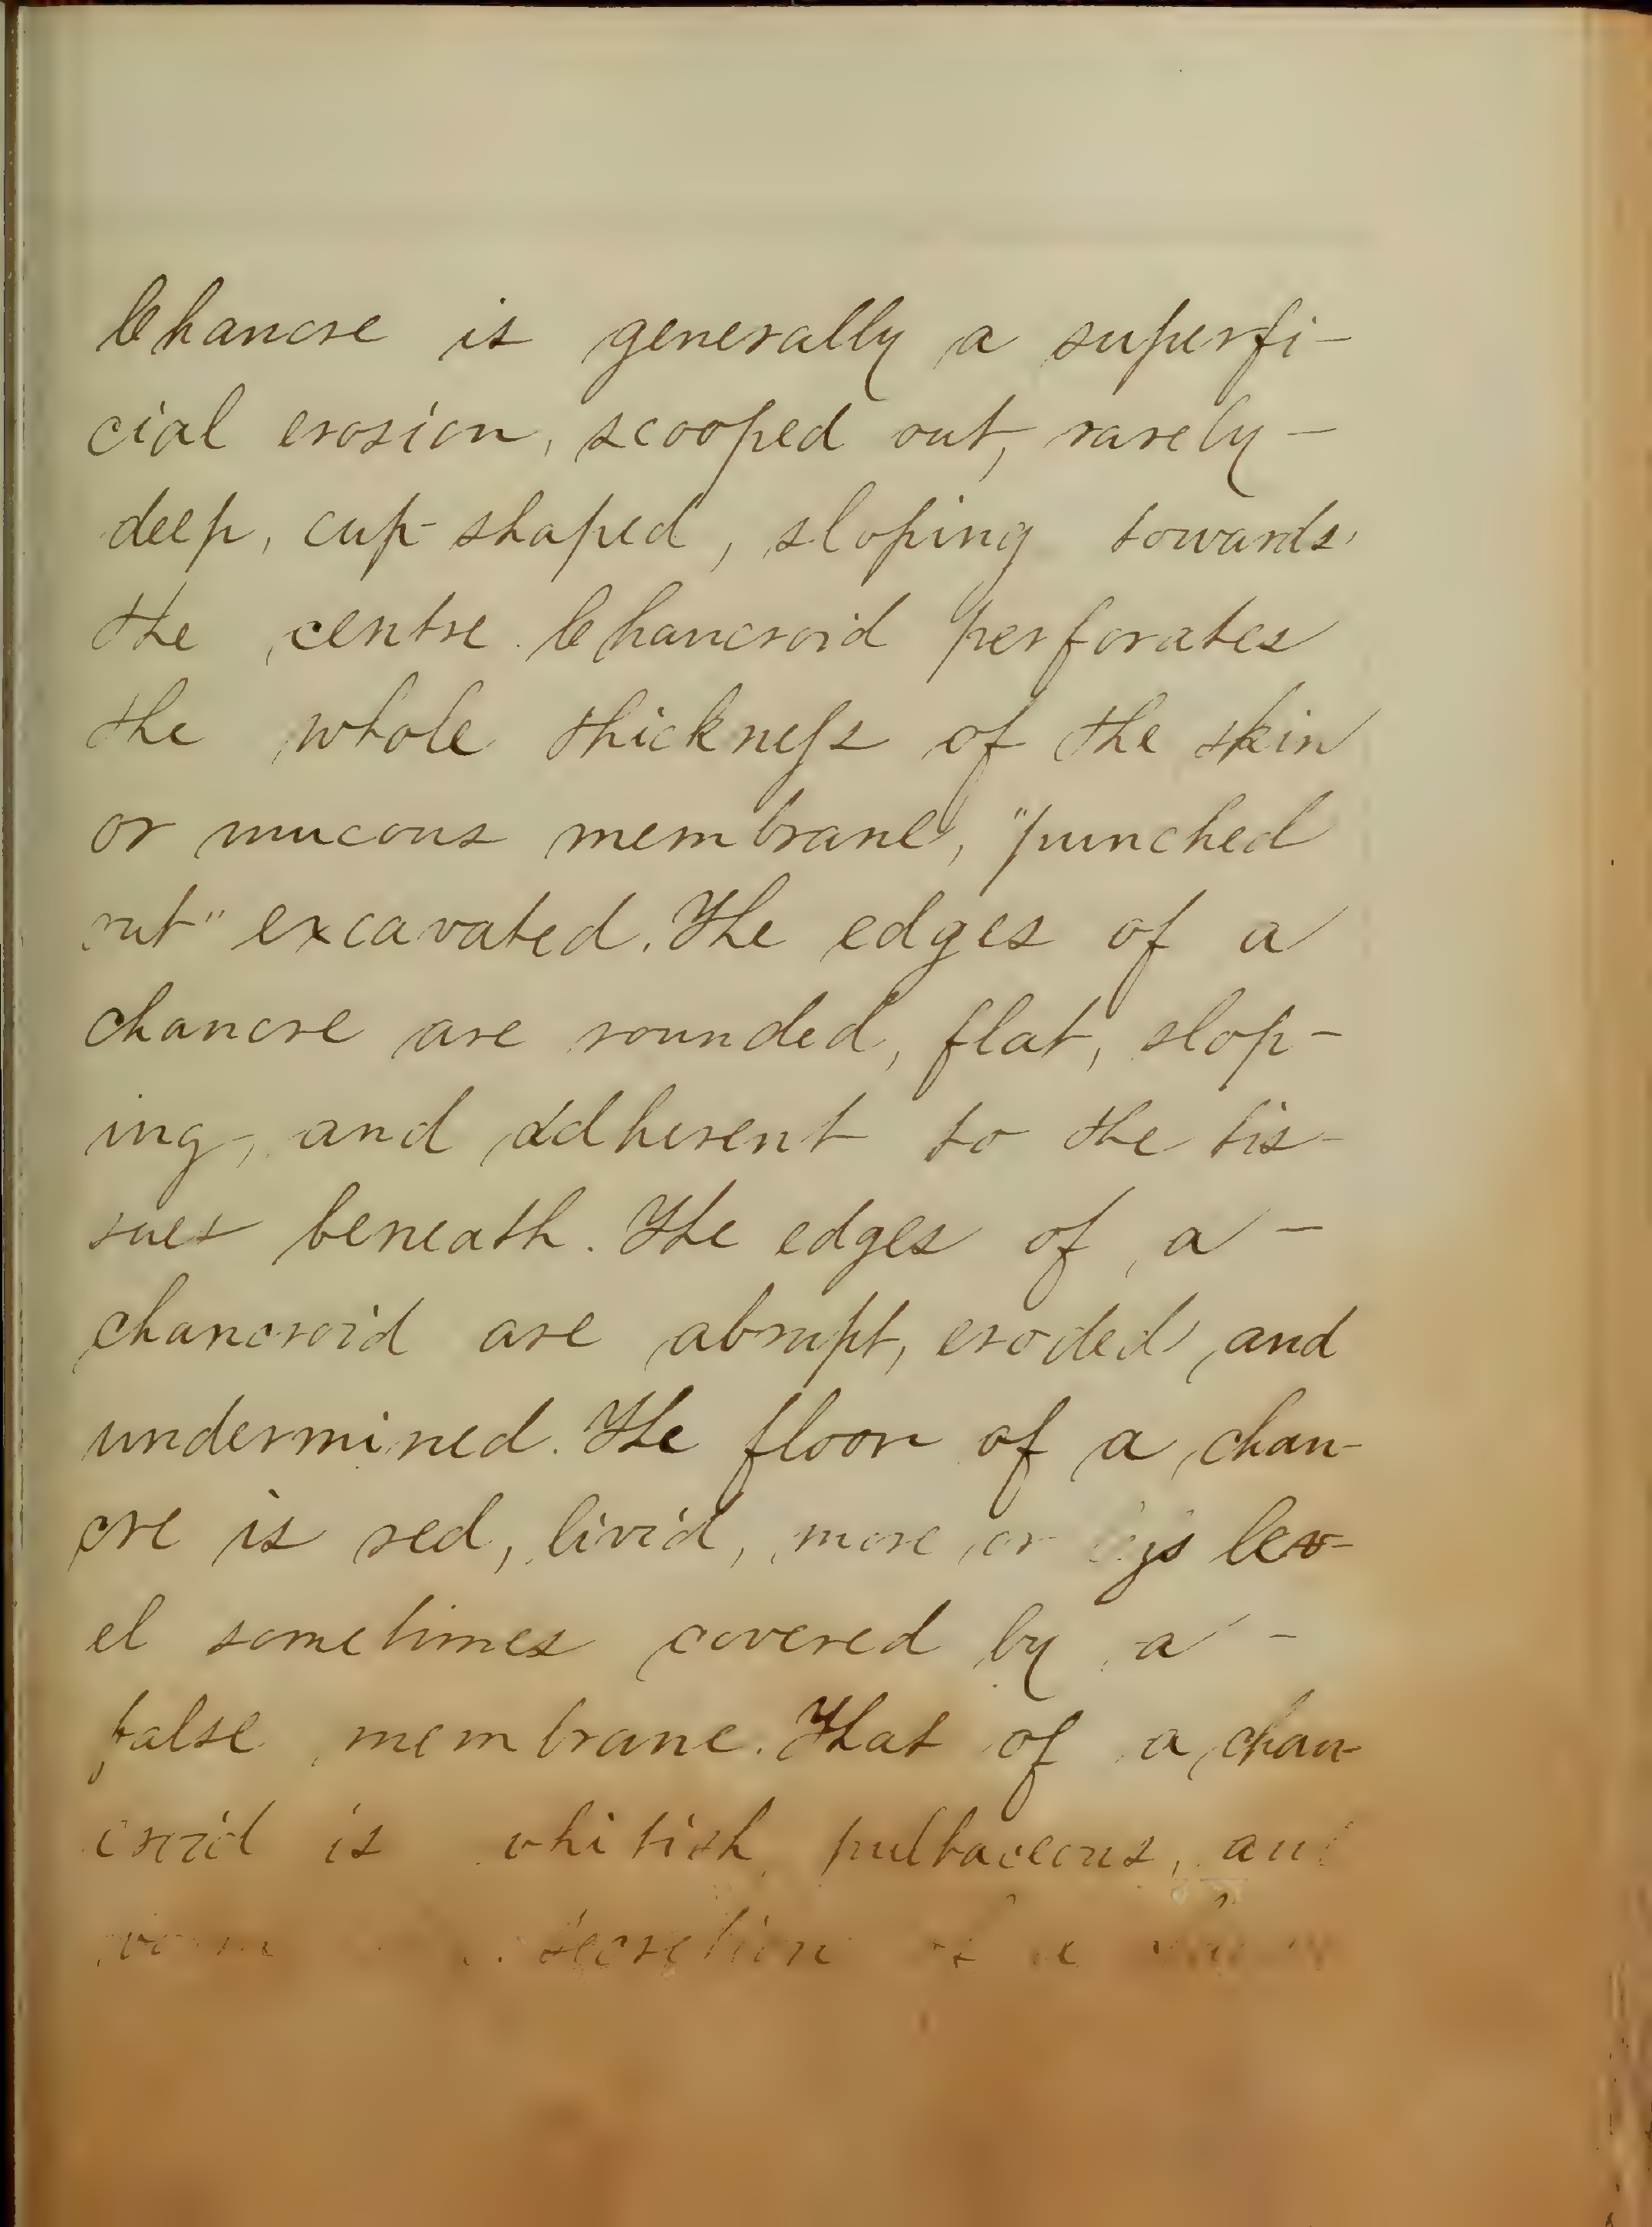 Chancre is generally a superfi-
cial erosion, scooped out, rarely -
deep, cup-shaped, sloping towards
the centre. Chancroid perforates
the whole thickness of the skin
or mucous membrane, "punched
out" excavated. The edges of a
chancre are rounded, flat, slop-
ing, and adherent to the tis-
sues beneath. The edges of a -
chancroid are abrupt, eroded, and
undermined. The floor of a chan-
cre is red, livid, more or less lev-
el sometimes covered by a -
false membrane. That of a chan-
croid is whitish, pultaceous, and
secretion